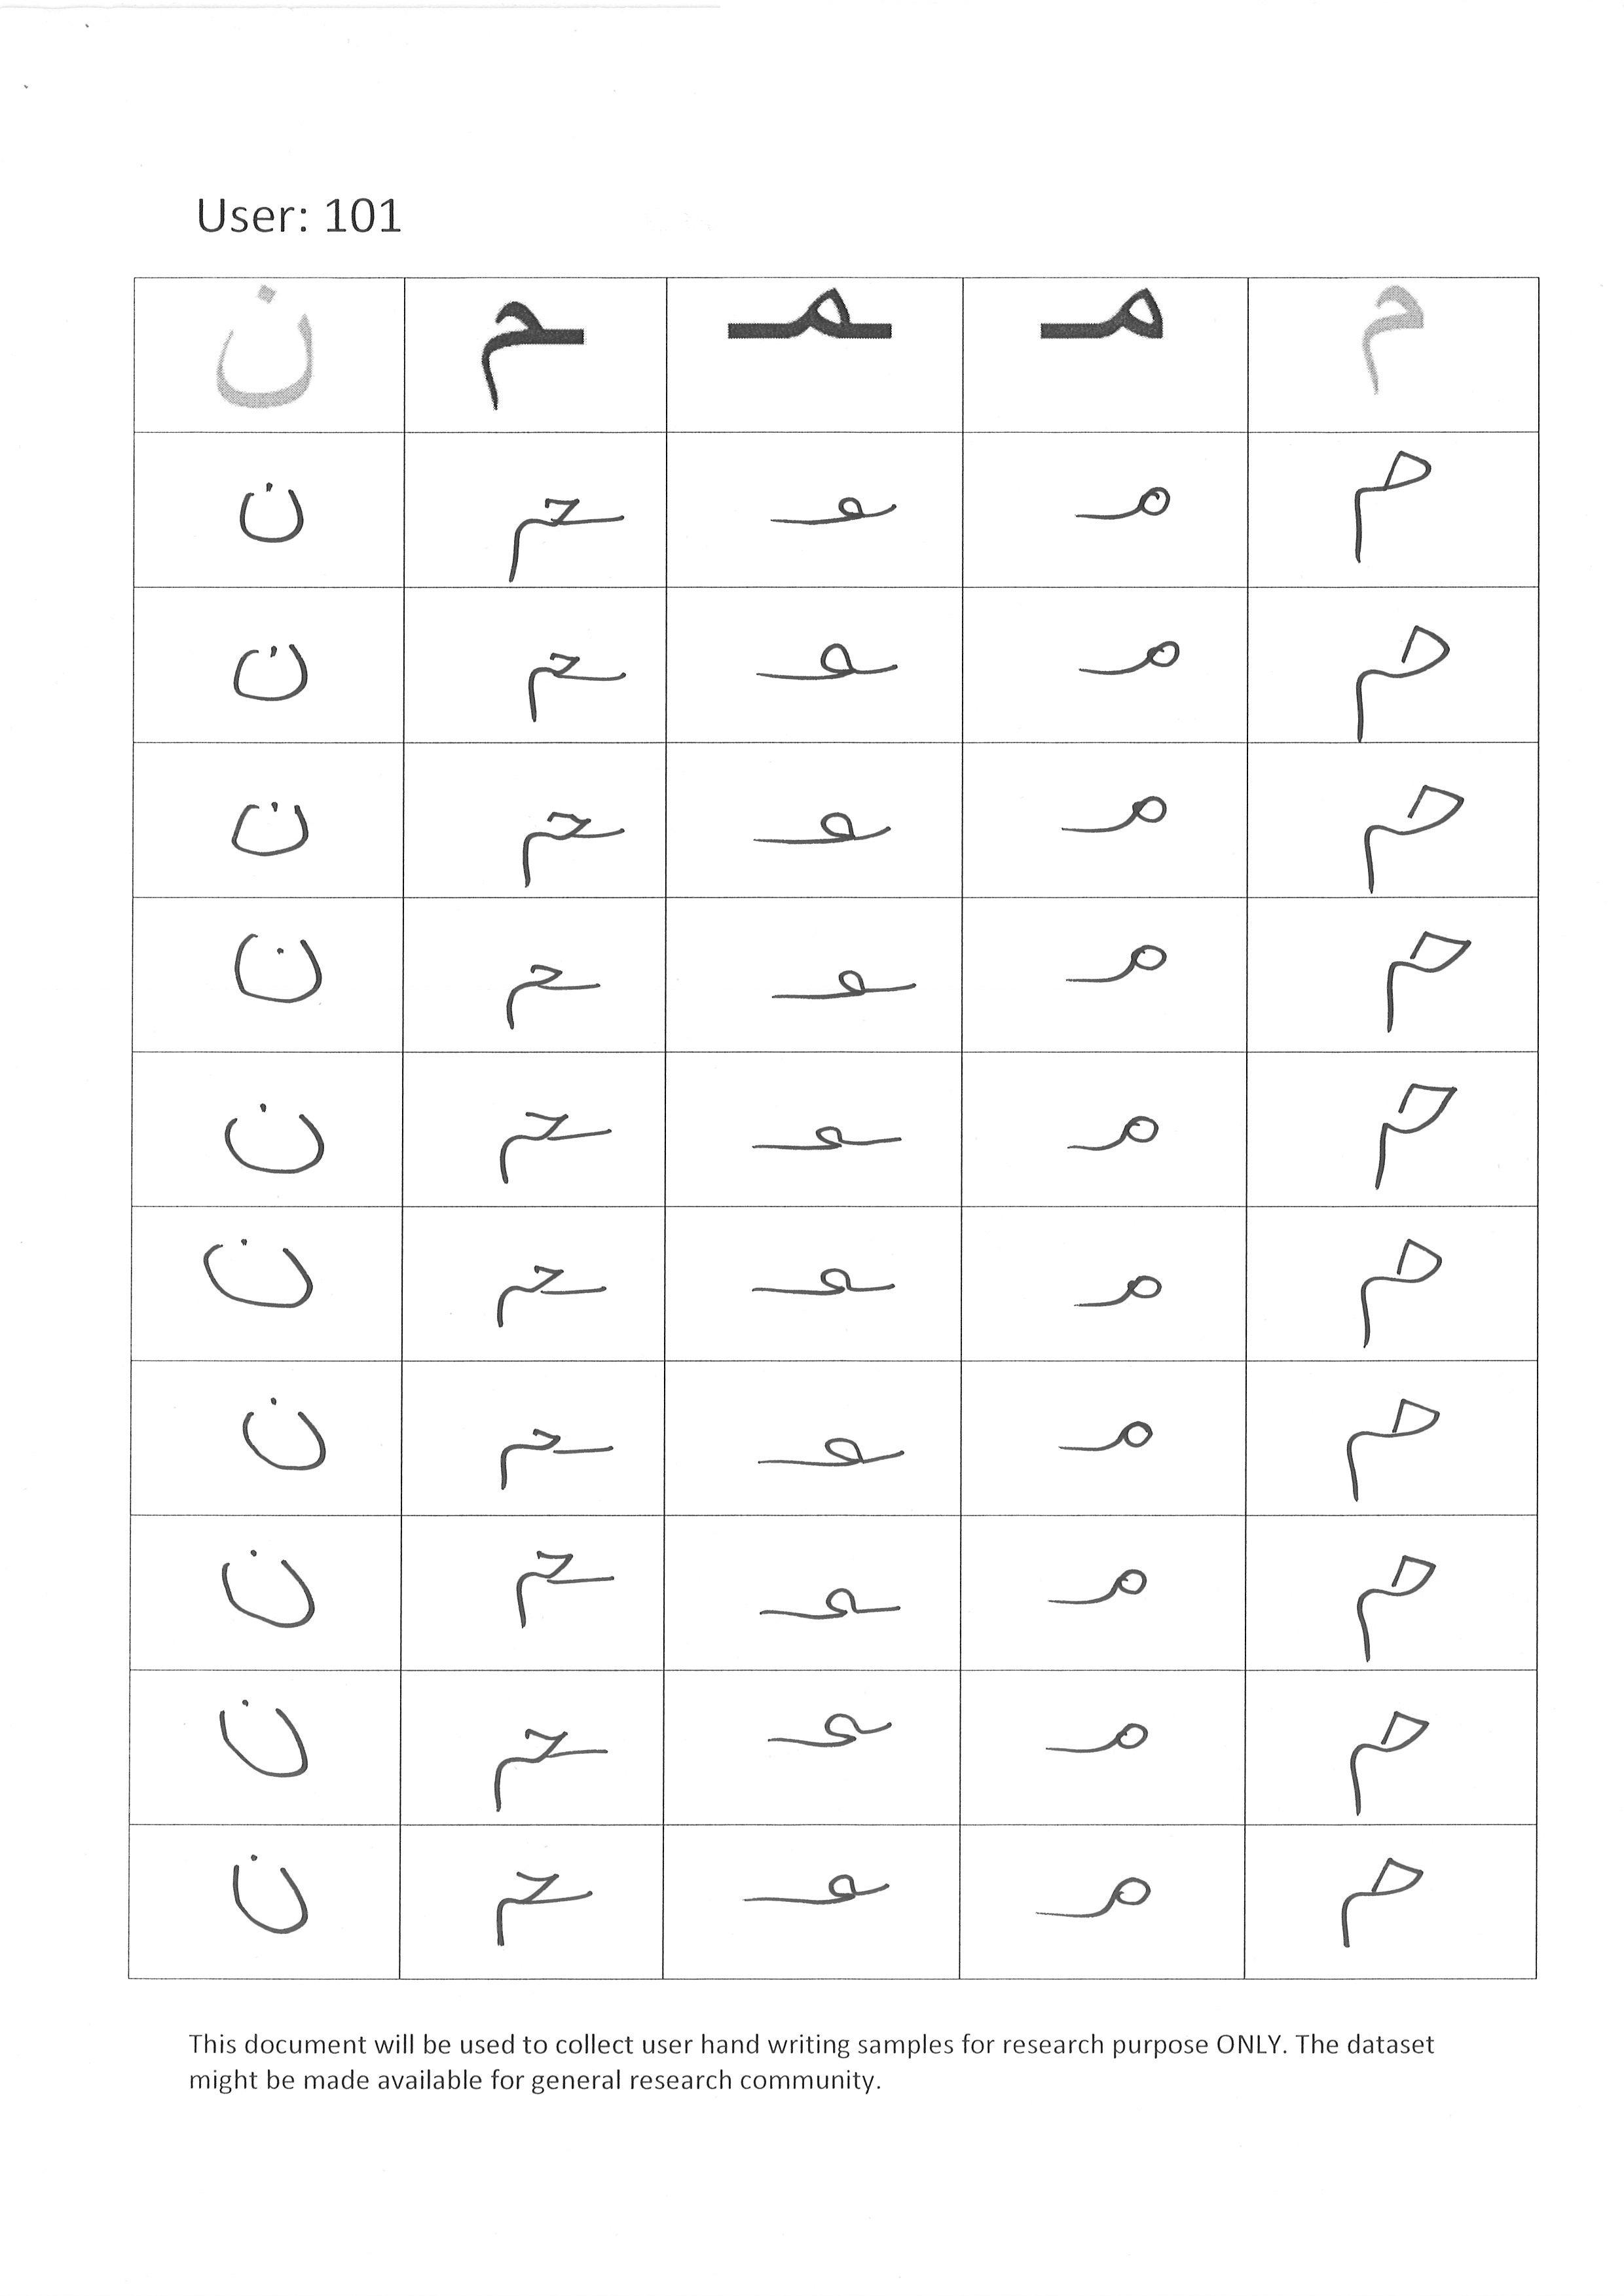 User: 101
م مـ ـمـ ـم ن
م مـ ـمـ ـم ن
م مـ ـمـ ـم ن
م مـ ـمـ ـم ن
م مـ ـمـ ـم ن
م مـ ـمـ ـم ن
م مـ ـمـ ـم ن
م مـ ـمـ ـم ن
م مـ ـمـ ـم ن
م مـ ـمـ ـم ن
م مـ ـمـ ـم ن
This document will be used to collect user hand writing samples for research purpose ONLY. The dataset
might be made available for general research community.